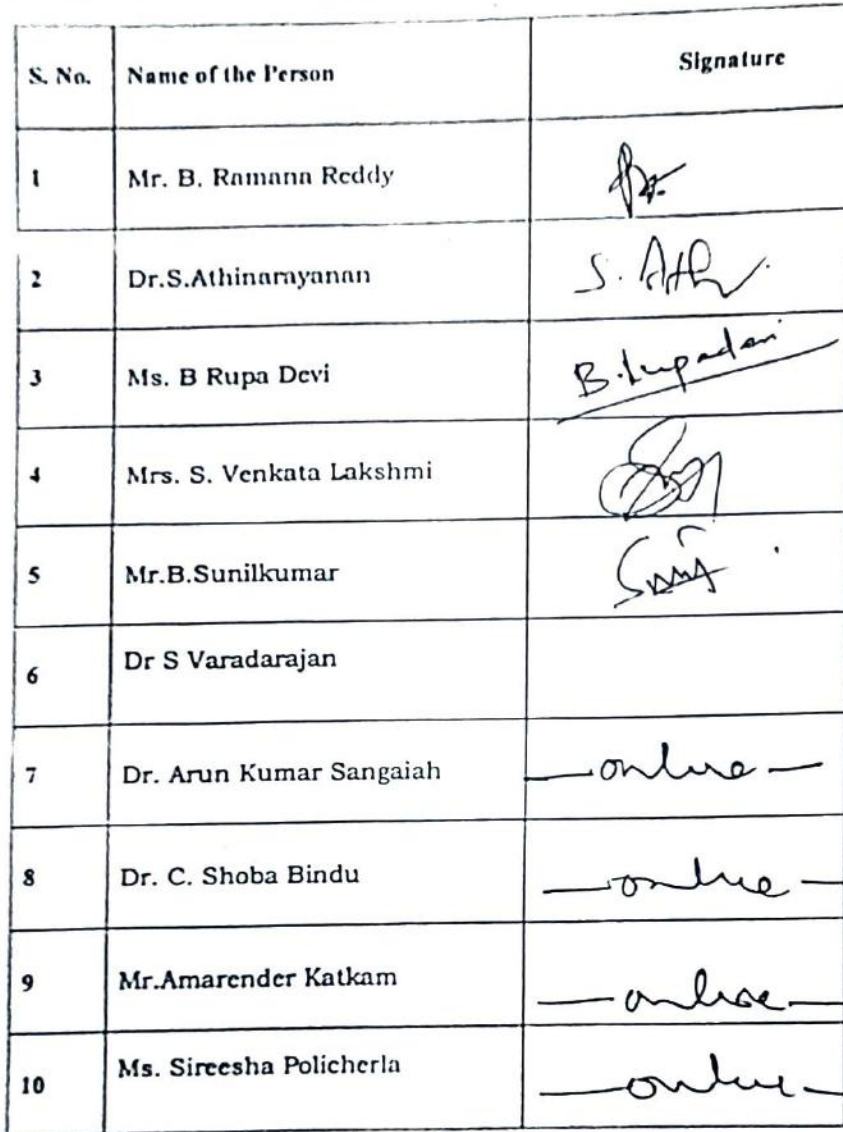 S. No. Name of the Person Signature
1 Mr. B. Ramana Reddy
2 Dr.S.Athinarayanan S. Ath
3 Ms. B Rupa Devi B.Rupadevi
4 Mrs. S. Venkata Lakshmi
5 Mr.B.Sunilkumar
6 Dr S Varadarajan
7 Dr. Arun Kumar Sangaiah —online—
8 Dr. C. Shoba Bindu —online—
9 Mr.Amarender Katkam —online—
10 Ms. Sireesha Policherla —online—